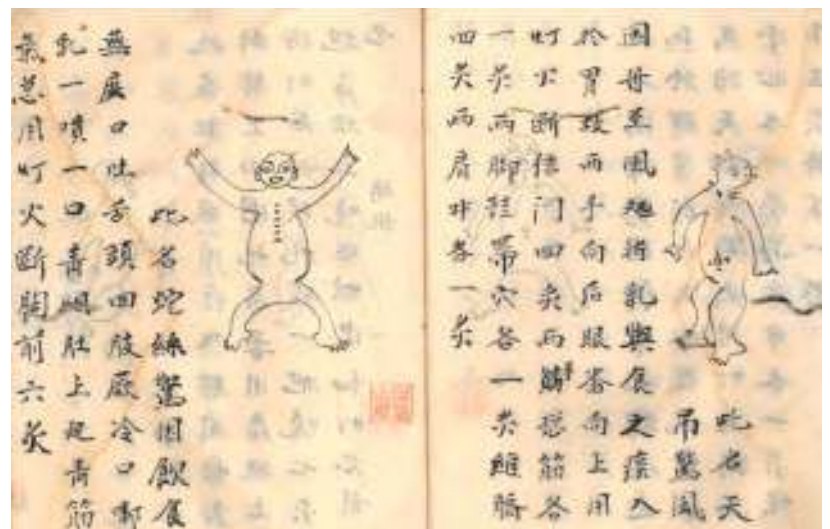 此名天
吊驚風
因母至風地將乳與食之痰入
於胃致兩手向后眼番向上用
灯火断信门四炙两总筋各
一炙两脚鞋帶穴各一炙維臍
四炙两肩井各一炙
此名蛇絲驚因飲食
無度口吐舌頭四肢厥冷口啣
乳一噴一口青烟肚上起青筋
氣急用灯火断胸前六炙